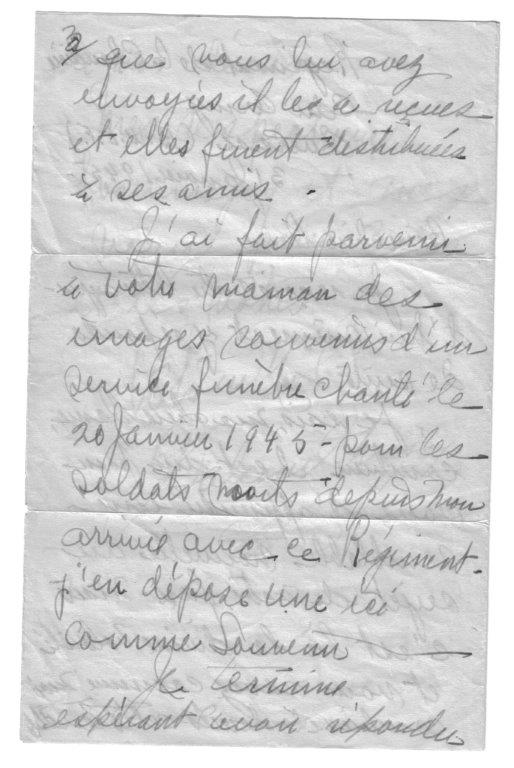 2/ que vous lui avez
envoyées il les a reçues
et elles furent distribuées
à ses amis.
J'ai fait parvenir
à votre maman des
images souvenirs d'un
service funèbre chanté le
20 Janvier 1945 - pour les
soldats morts depuis mon
arrivée avec ce Régiment.
j'en dépose une ici
comme Souvenir
Je termine
espérant avoir répondu